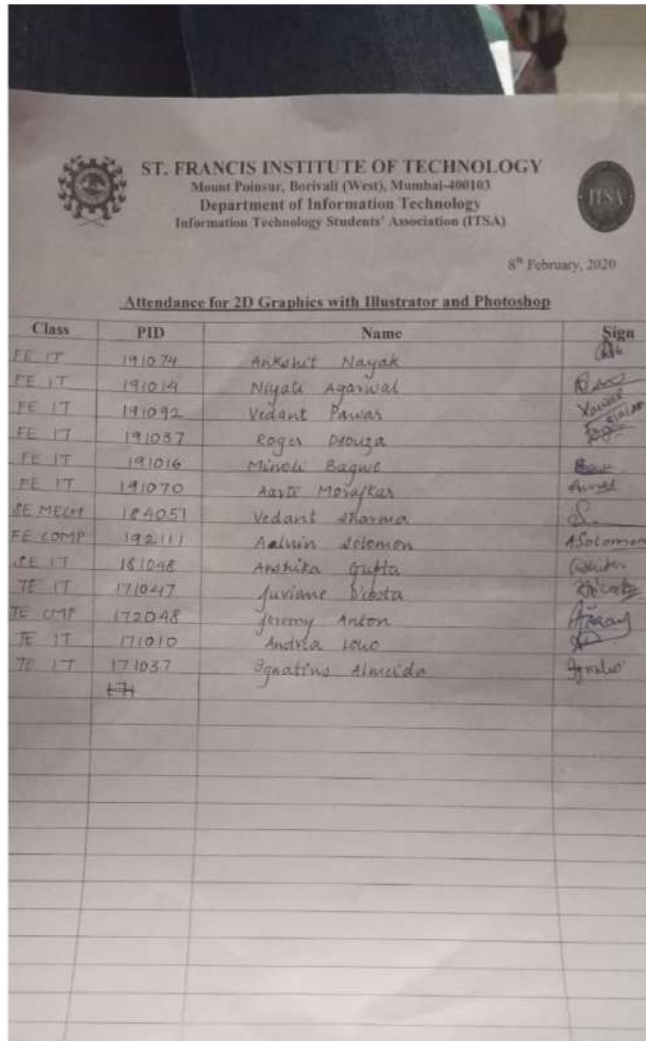 ST. FRANCIS INSTITUTE OF TECHNOLOGY
Mount Poinsur, Borivali (West), Mumbai-400103
Department of Information Technology
Information Technology Students' Association (ITSA)
ITSA
8th February, 2020
Attendance for 2D Graphics with Illustrator and Photoshop
Class PID Name Sign
FE IT 191074 Ankshit Nayak
FE IT 191014 Niyati Agarwal
FE IT 191092 Vedant Pawar
FE IT 191037 Roger Dsouza
FE IT 191016 Minoli Bagwe
FE IT 191070 Aarti Morajkar
SE MECH 184051 Vedant Sharma
FE COMP 192111 Aalvin Solomon ASolomon
SE IT 181048 Anshika Gupta
TE IT 171047 Juviane D'costa
TE CMP 172048 Jeremy Anton
TE IT 171010 Andrea
TE IT 171037 Ignatius Almeida